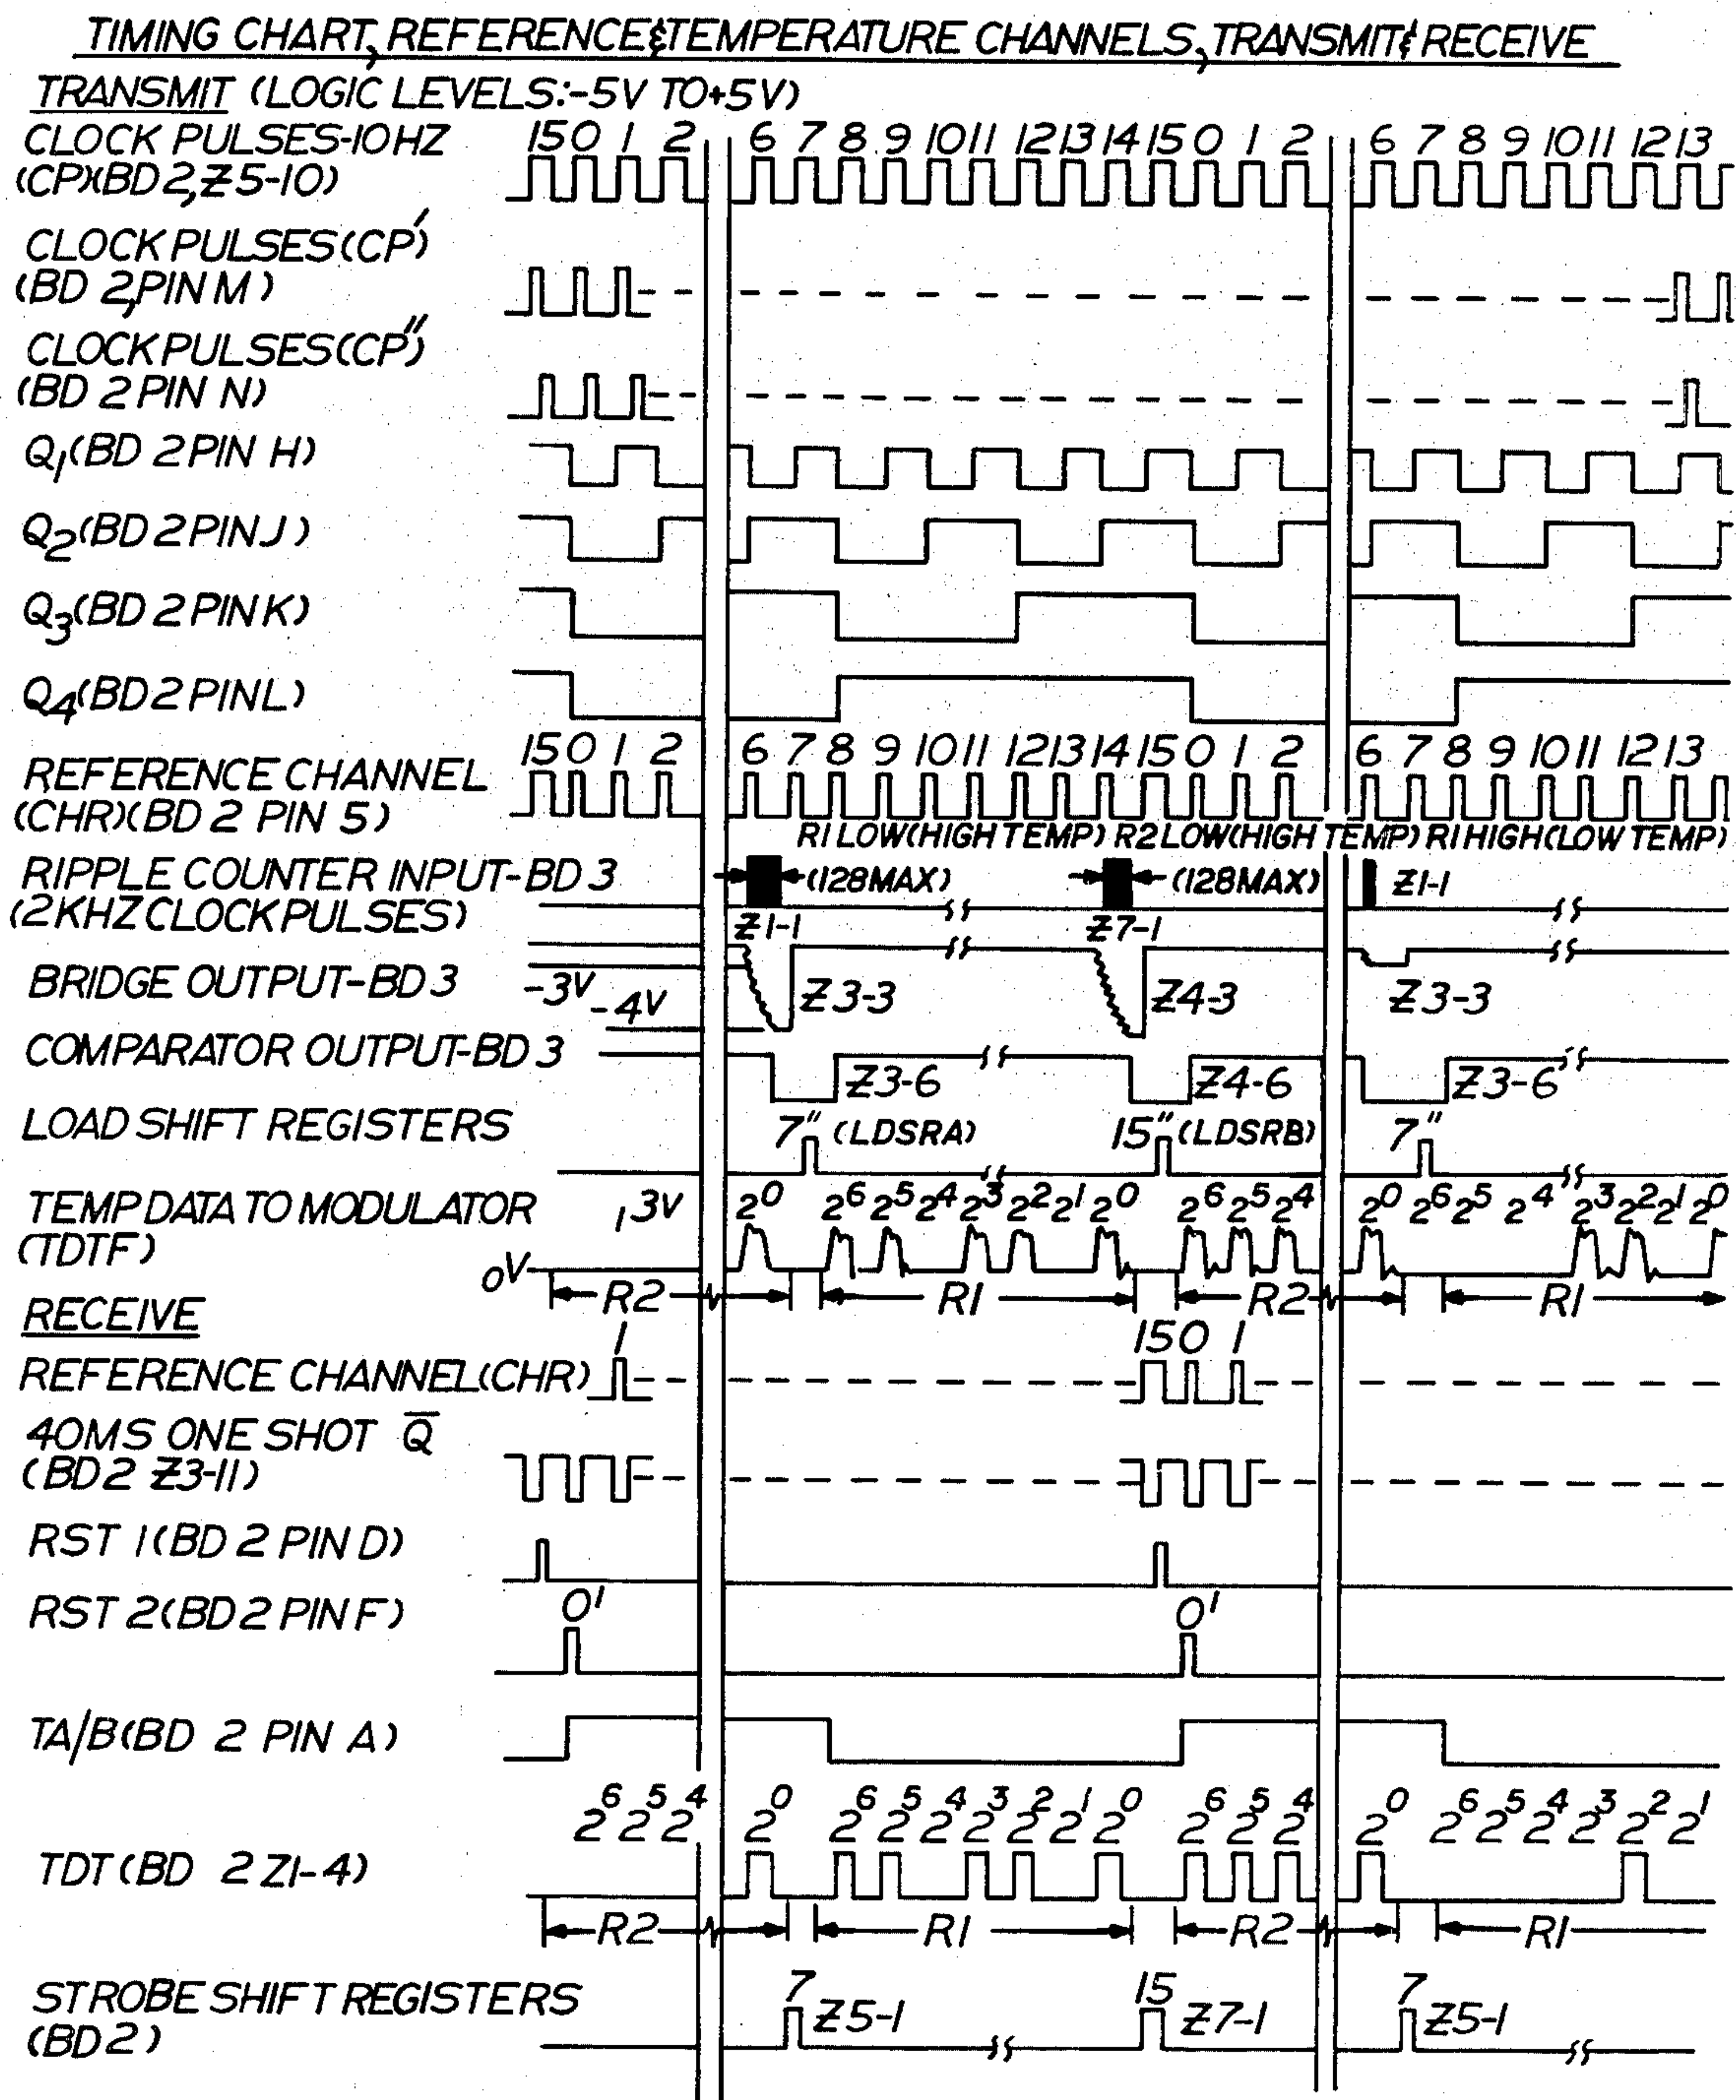 TIMING CHART, REFERENCE & TEMPERATURE CHANNELS, TRANSMIT & RECEIVE
TRANSMIT (LOGIC LEVELS:-5V TO+5V)
CLOCK PULSES-10HZ
(CP)(BD 2, Z5-10)
15 0 1 2 6 7 8 9 10 11 12 13 14 15 0 1 2 6 7 8 9 10 11 12 13
CLOCK PULSES (CP')
(BD 2, PIN M)
CLOCK PULSES (CP'')
(BD 2 PIN N)
Q1 (BD 2 PIN H)
Q2 (BD 2 PIN J)
Q3 (BD 2 PIN K)
Q4 (BD 2 PIN L)
15 0 1 2 6 7 8 9 10 11 12 13 14 15 0 1 2 6 7 8 9 10 11 12 13
REFERENCE CHANNEL
(CHR)(BD 2 PIN 5)
R1 LOW(HIGH TEMP) R2 LOW(HIGH TEMP) R1 HIGH(LOW TEMP)
RIPPLE COUNTER INPUT-BD 3
(2KHZ CLOCK PULSES)
(128 MAX) (128 MAX) Z1-1
Z1-1 Z7-1
BRIDGE OUTPUT-BD 3
-3V
-4V
Z3-3 Z4-3 Z3-3
COMPARATOR OUTPUT-BD 3
Z3-6 Z4-6 Z3-6
LOAD SHIFT REGISTERS
7'' (LDSRA) 15'' (LDSRB) 7''
TEMP DATA TO MODULATOR
(TDTF)
13V
0V
2⁰ 2⁶ 2⁵ 2⁴ 2³ 2² 2¹ 2⁰ 2⁶ 2⁵ 2⁴ 2⁰ 2⁶ 2⁵ 2⁴ 2³ 2² 2¹ 2⁰
R2 R1 R2 R1
RECEIVE
1 15 0 1
REFERENCE CHANNEL (CHR)
40MS ONE SHOT Q̅
(BD2 Z3-11)
RST 1 (BD 2 PIN D)
RST 2 (BD 2 PIN F)
0' 0'
TA/B (BD 2 PIN A)
2⁶ 2⁵ 2⁴ 2⁰ 2⁶ 2⁵ 2⁴ 2³ 2² 2¹ 2⁰ 2⁶ 2⁵ 2⁴ 2⁰ 2⁶ 2⁵ 2⁴ 2³ 2² 2¹
TDT (BD 2 Z1-4)
R2 R1 R2 R1
STROBE SHIFT REGISTERS
(BD 2)
7 15 7
Z5-1 Z7-1 Z5-1